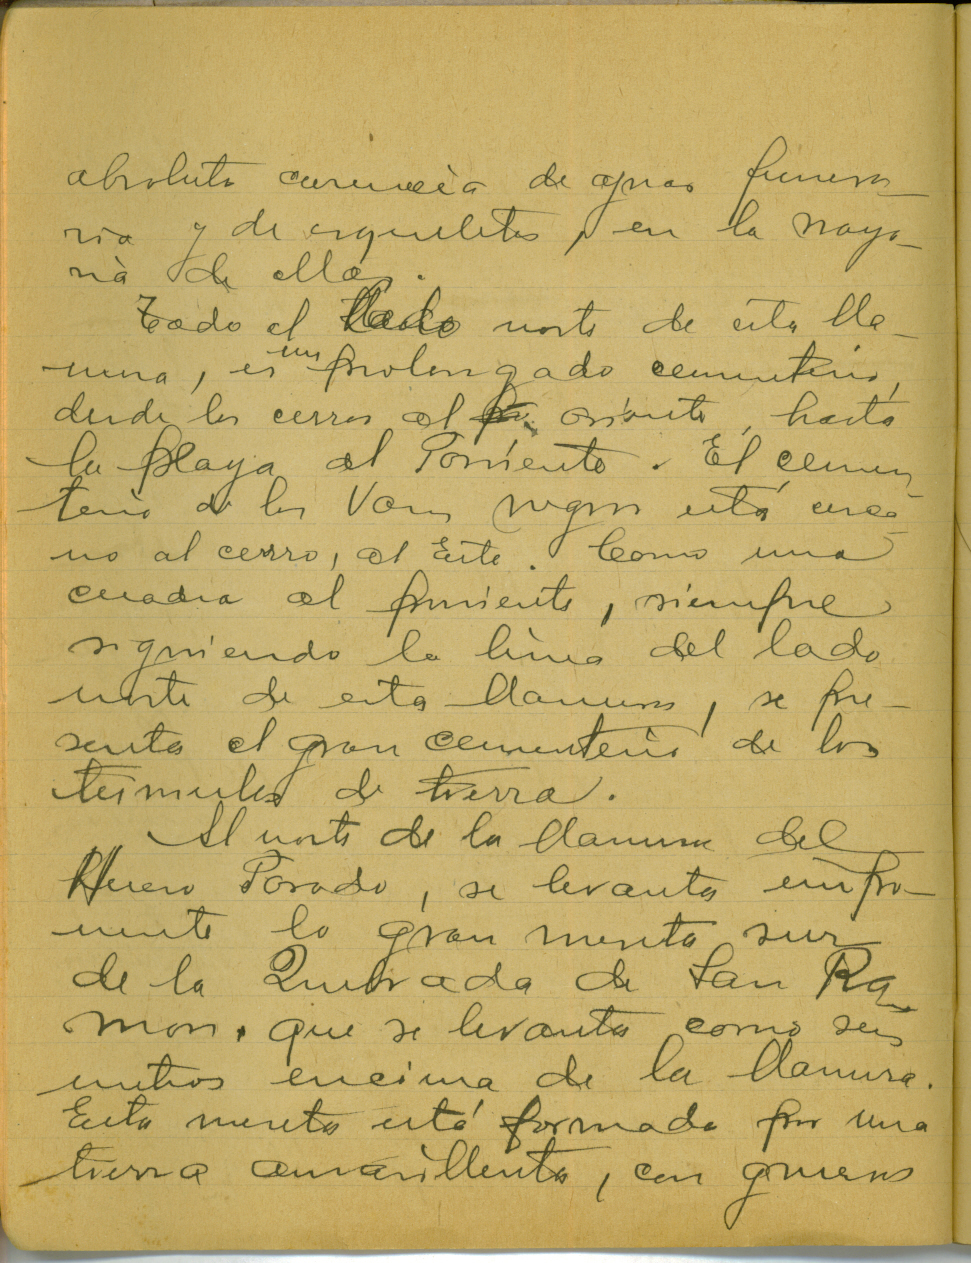 absoluta carencia de ajuar funera-
rio y de esqueletos, en la mayo-
ria de ellas.
Todo el lado norte de esta lla-
nura, es un prolongado cementerio,
desde los cerros al oriente, hasta
la playa al Poniente. El cemen-
terio de los Vasos negros está cerca-
no al cerro, al Este. Como una
cuadra al poniente, siempre
siguiendo la linea del lado
norte de esta llanura, se pre-
senta el gran cementerio de los
túmulos de tierra.
Al norte de la llanura del
Hueso Parado, se levanta
la gran meseta sur
de la Quebrada de San Ra
mon, que se levanta como seis
metros encima de la llanura.
Esta meseta está formada por una
tierra amarillenta, con gruesos